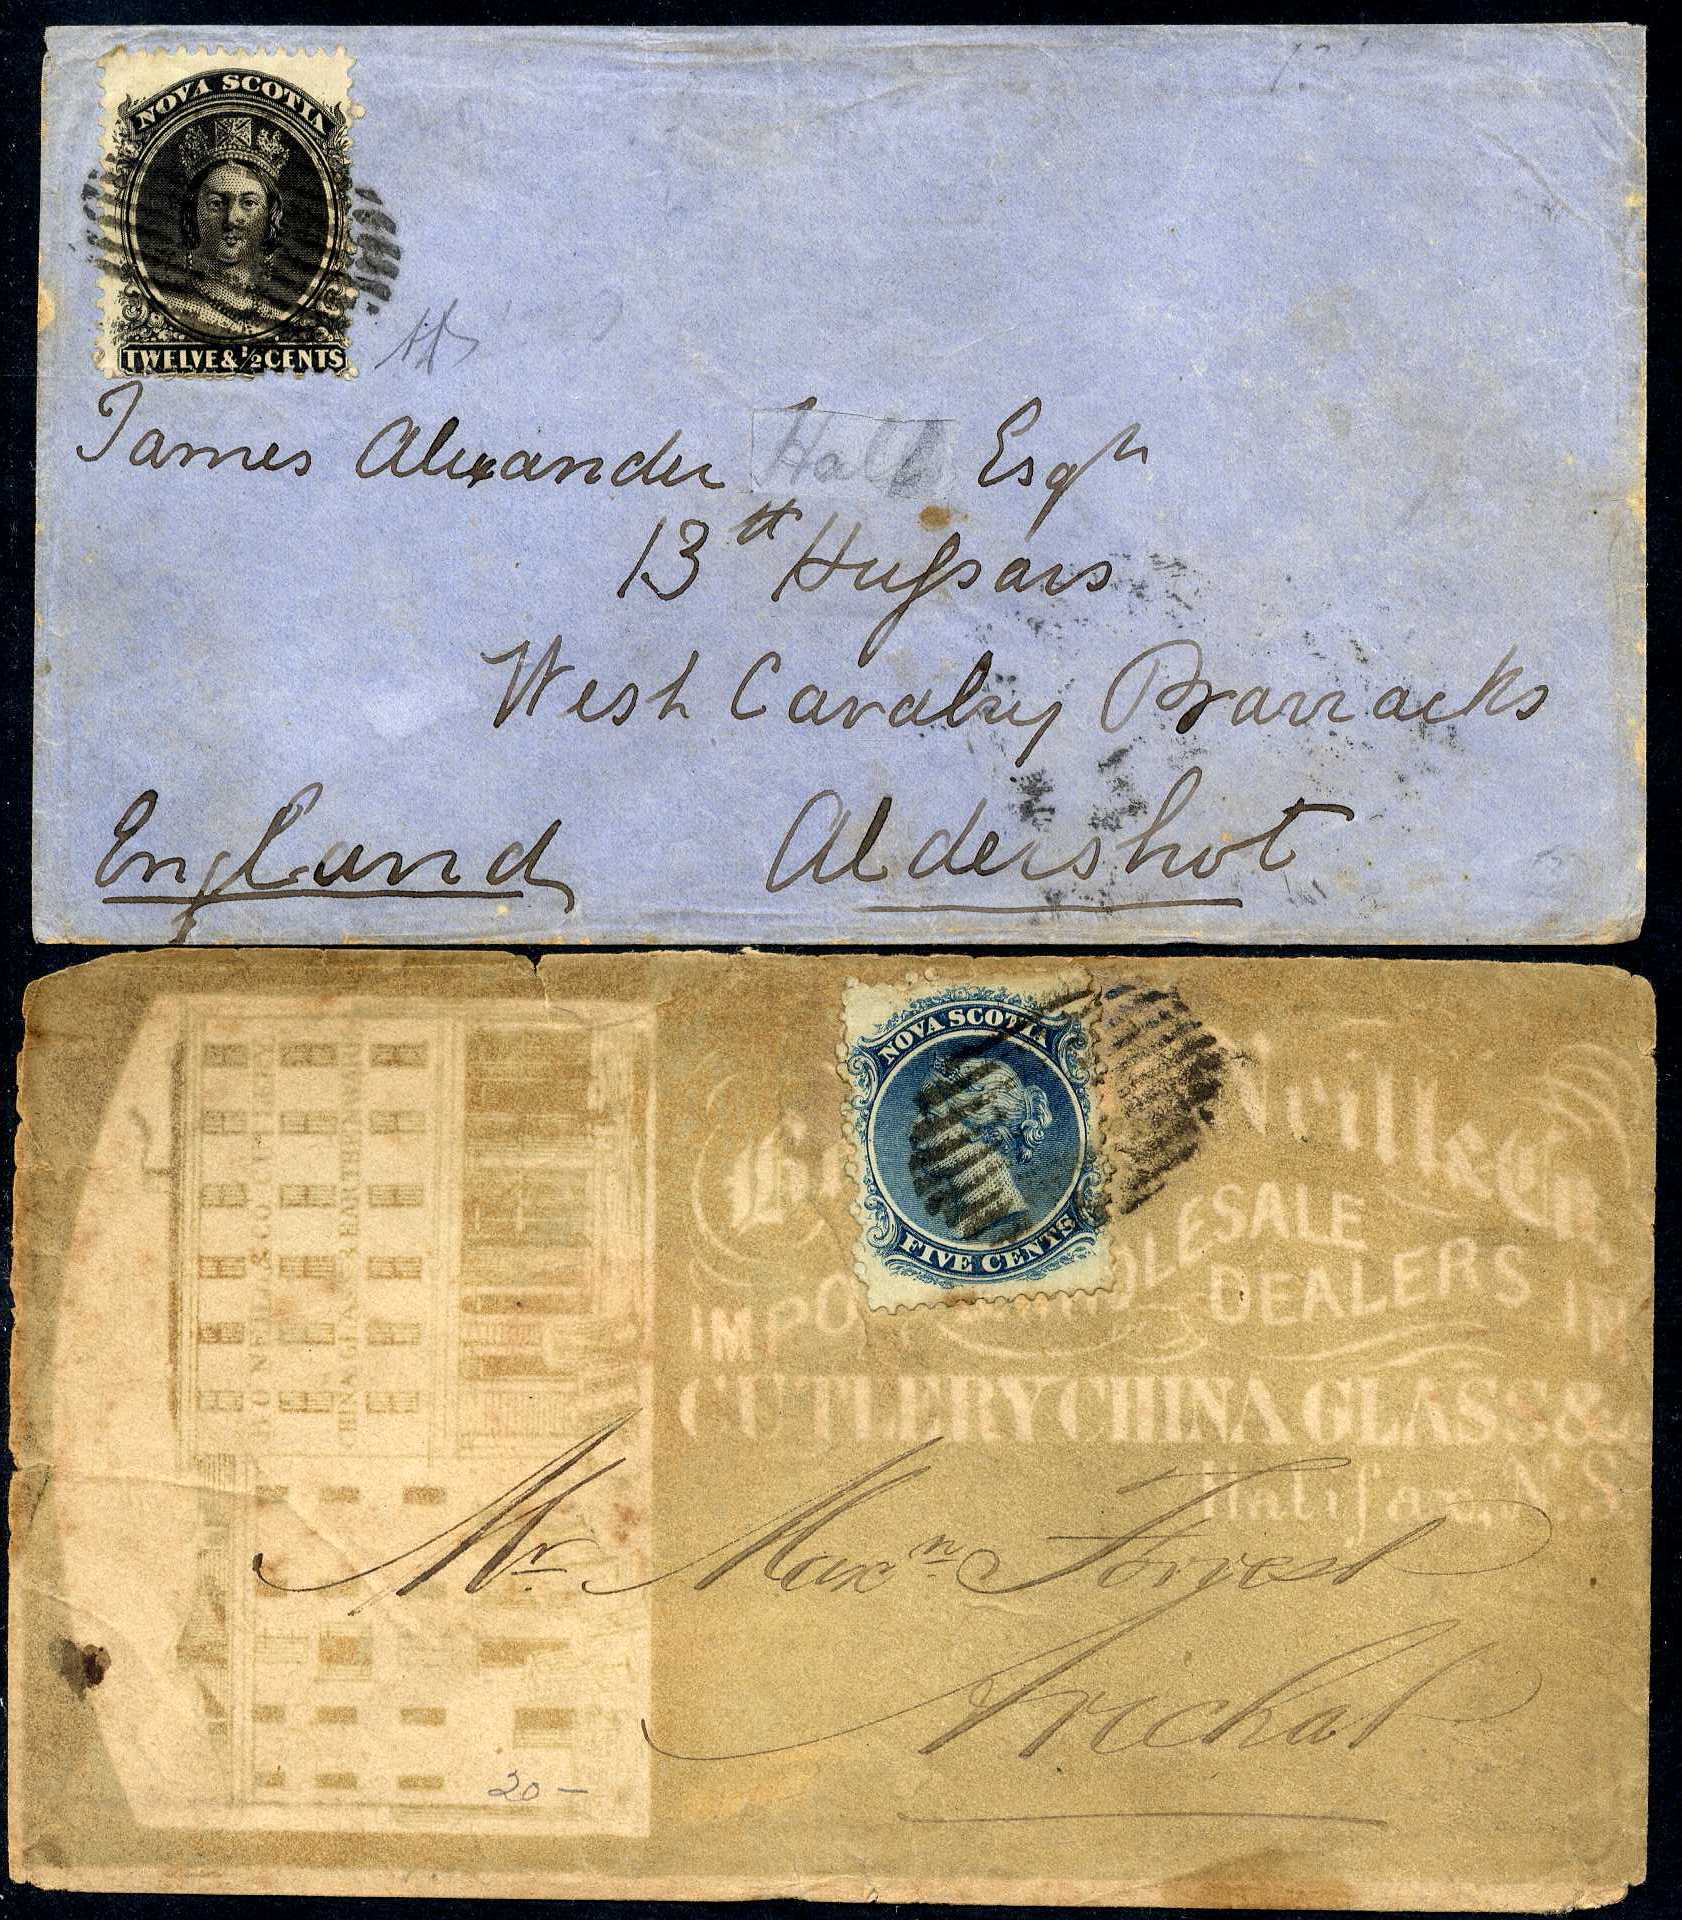 NOVA SCOTIA
TWELVE & ½ CENTS
James Alexander Hall Esqr
13th Hussars
West Cavalry Barracks
England Aldershot
NOVA SCOTIA
FIVE CENTS
Neill & Co
WHOLESALE
DEALERS IN
CUTLERY CHINA GLASS &
Halifax, N.S.
Mr Maxn Forrest
Arichat
20-